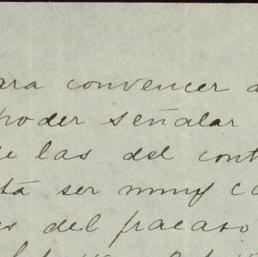 ara convencer a
poder señalar
e las del cont
tá ser muy co
es del fracaso